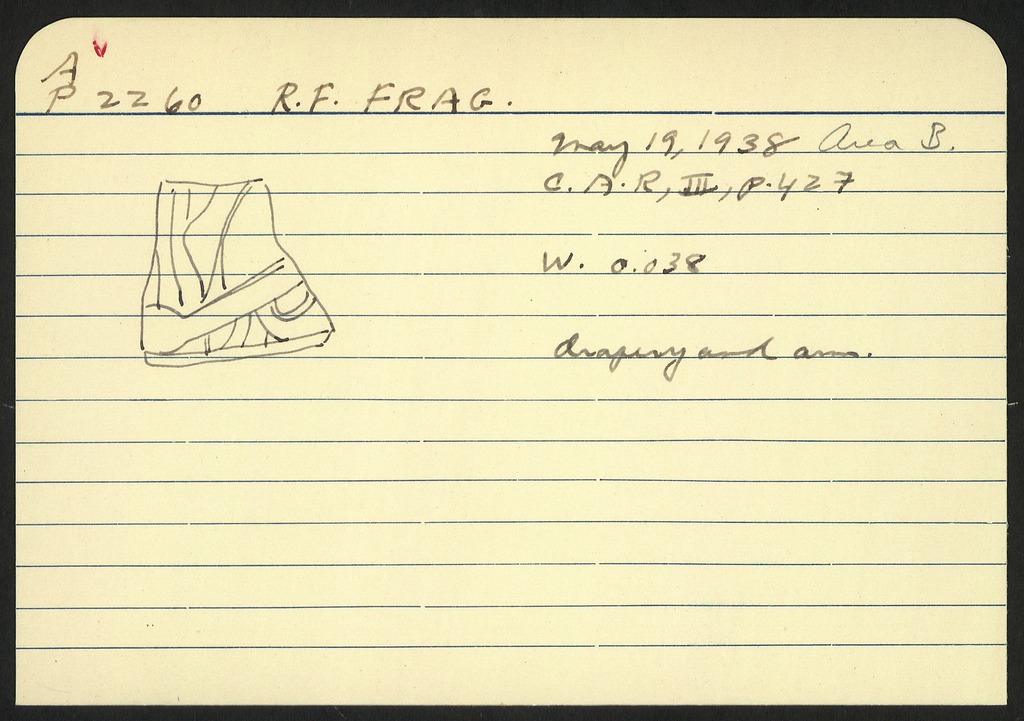 A
P 2260 R.F. FRAG.
May 19, 1938 Area B.
C. A. R, III, p. 427
W. 0.038
drapery and arm.